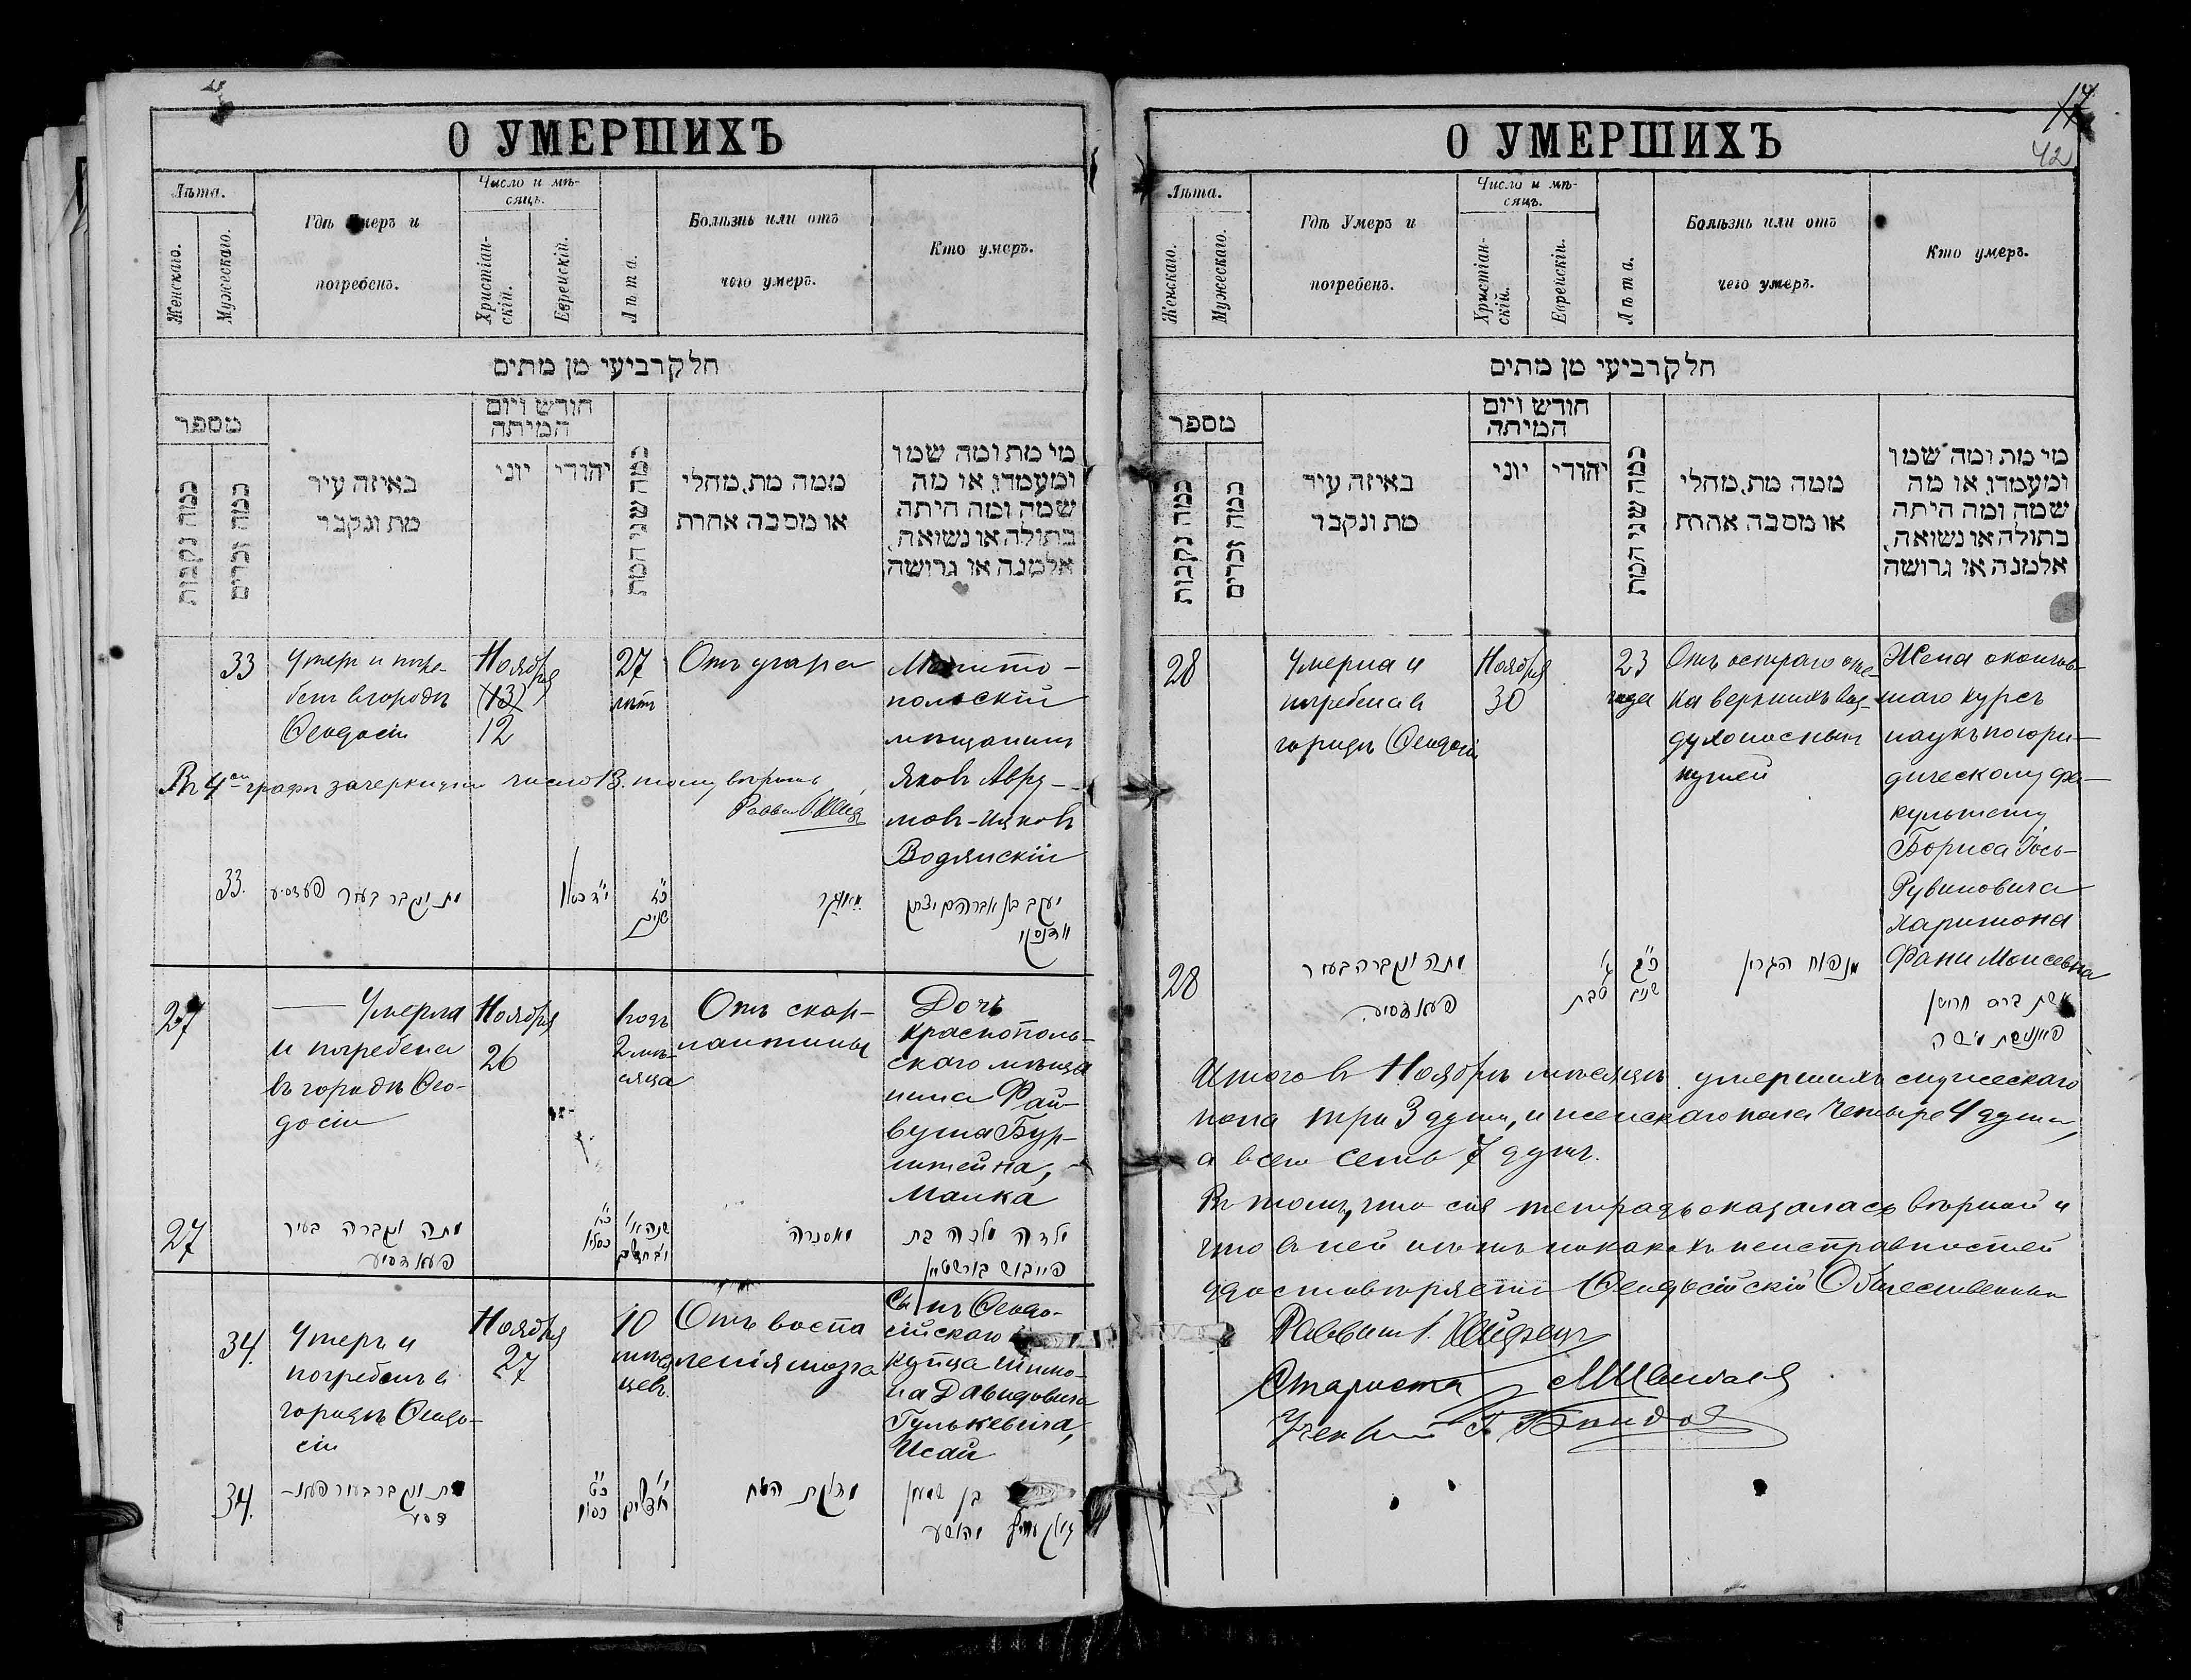 О УМЕРШИХЪ
Лѣта.
Женскаго.
Мужескаго.
Гдѣ Умеръ и
погребенъ.
Число и мѣ-
сяцъ.
Христіан-
скій.
Еврейскій.
Лѣта.
Болѣзнь или отъ
чего умеръ.
Кто умеръ.
חלק רביעי מן מתים
מספר
כמה נקבות
כמה זכרים
באיזה עיר
מת ונקבר
חודש ויום
המיתה
יוני
יהודי
כמה שני המת
ממה מת, מחלי
או מסבה אחרת
מי מת ומה שמו
ומעמדו, או מה
שמה ומה היתה
בתולה או נשואה,
אלמנה או גרושה
33
Умеръ и погре-
бенъ въ городѣ
Ѳеодосіи
Ноября
(13)
12
27
лѣтъ
Отъ угара
Мелито-
польскій
мѣщанинъ
Яковъ Авру-
мовъ-Ицковъ
Водянскій
Въ 4ой графѣ зачеркнуто число 13. тому вѣрить
33.
מת ונקבר בעיר
י״ד כסלו
כ״ז
שנים
יעקב בן אברהם יצחק
27
Умерла
и погребена
въ городѣ Ѳео-
досіи
Ноября
26
1 годъ
2 мѣ-
сяца
Отъ скар-
латины
Дочь
Краснополь-
скаго мѣща
нина Фай-
вуша Бур-
штейна,
Малка
27
מתה ונקברה בעיר
פעאדסיע
כסליו
ילדה מלכה בת
פייבוש בורשטיין
34.
Умеръ и
погребенъ въ
городѣ Ѳеодо-
сіи
Ноября
27
10
мѣся
цевъ.
Отъ воспа
ленія мозга
Сынъ Ѳеодо-
сійскаго
купца Шимо-
на Давидовича
Гулькевича,
Исай
34.
מת ונקבר בעיר פעא-
דסיע
כ״ט
כסליו
י׳
חדשים
דלקת המח
בן שמעון
О УМЕРШИХЪ
17
42
Лѣта.
Женскаго.
Мужескаго.
Гдѣ Умеръ и
погребенъ.
Число и мѣ-
сяцъ.
Христіан-
скій.
Еврейскій.
Лѣта.
Болѣзнь или отъ
чего умеръ.
Кто умеръ.
חלק רביעי מן מתים
מספר
כמה נקבות
כמה זכרים
באיזה עיר
מת ונקבר
חודש ויום
המיתה
יוני
יהודי
כמה שני המת
ממה מת, מחלי
או מסבה אחרת
מי מת ומה שמו
ומעמדו, או מה
שמה ומה היתה
בתולה או נשואה,
אלמנה או גרושה
28
Умерла и
погребена въ
городѣ Ѳеодосіи
Ноября
30
23
года
Отъ остраго оте-
ка верхнихъ воз-
духоносныхъ
путей
Жена окончив-
шаго курсъ
наукъ по юри-
дическому фа-
культету
Бориса Іось-
Рувиновича
Харитона
Фани Моисевна
28
מתה ונקברה בעיר
פעאדסיע
טבת
כ״ג
שנים
מנפוח הגרון
Итого въ Ноябрѣ мѣсяцѣ умершихъ мужескаго
пола три 3 души, и женскаго пола четыре 4 души,
а всего семь 7 душъ.
Въ томъ, что сія тетрадь оказалась вѣрной и
что въ ней нѣтъ никакихъ неисправностей
удостовѣряетъ Ѳеодосійскій Общественный
Раввинъ
Староста